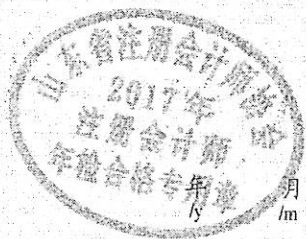 山东省注册会计师协会
2017年
注册会计师
年检合格专用章
年 月
/y /m